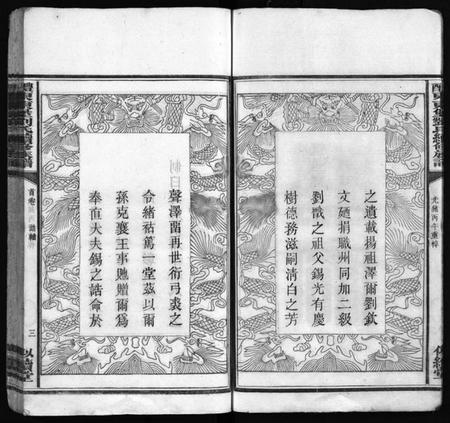 之遺載揚祖澤爾劉欽
文廼捐職州同加二級
劉戩之祖父錫光有慶
樹德務滋嗣清白之芳
制曰
聲澤留再世衍弓裘之
令緒祜篤一堂茲以爾
孫克襄王事貤贈爾爲
奉直大夫錫之誥命於
光緒丙午重修
首卷
誥軸
三